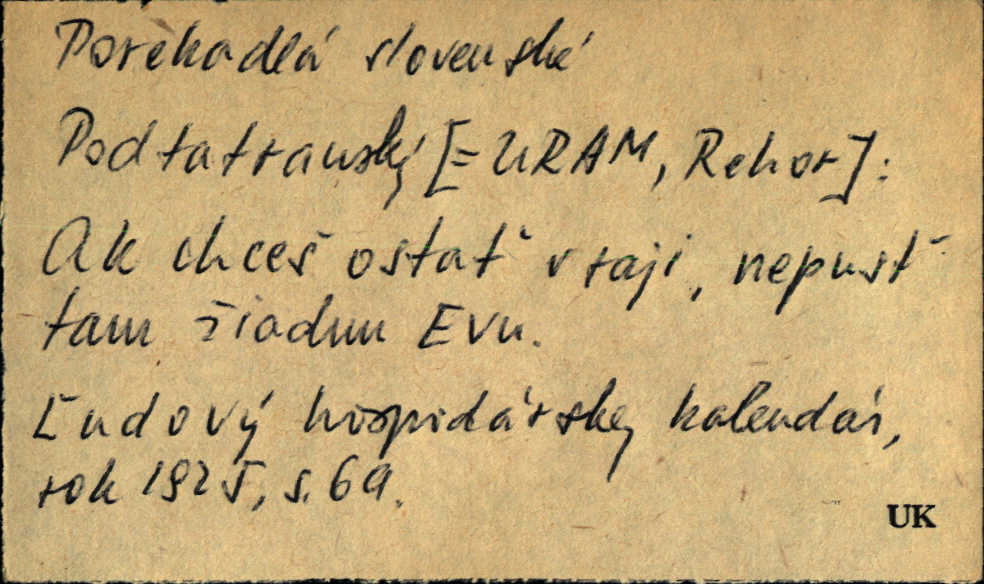 Porekadlá slovenské
Podtatranský [= URAM, Rehor]:
Ak chceš ostať v raji, nepusť
tam žiadnu Evu.
Ľudový hospodársky kalendár,
rok 1925, s. 69.
UK